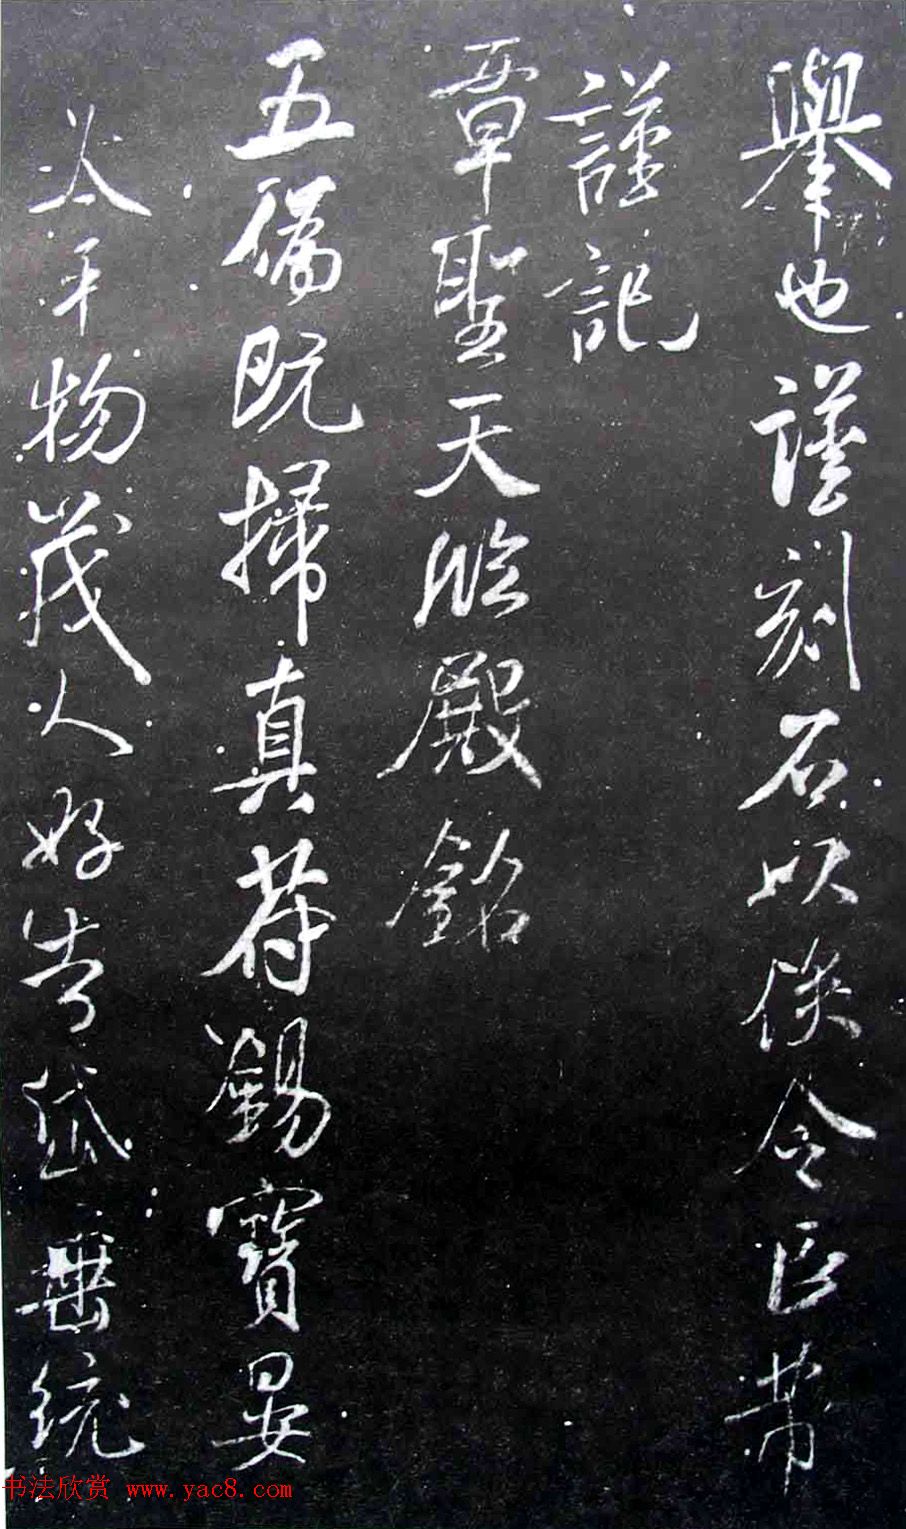 舉也謹刻石以俟令臣芾
謹記
章聖天臨殿銘
五僞既掃真符錫寶晏
平物茂人好告岱垂統
书法欣赏 www.yac8.com